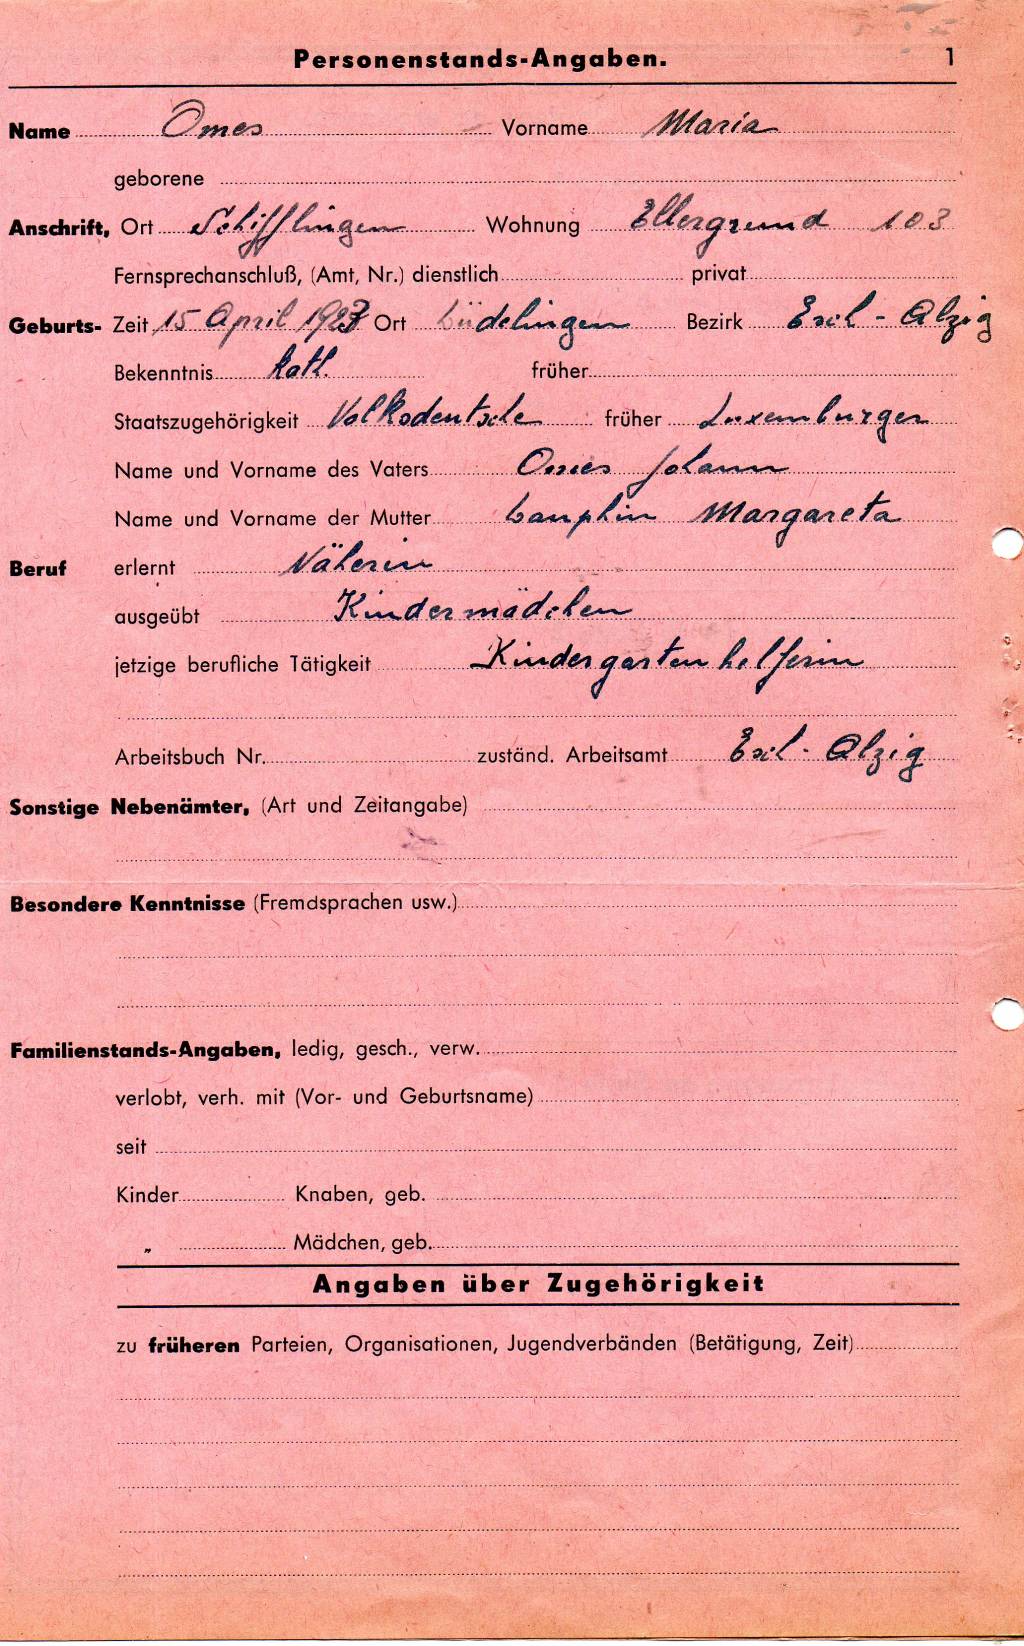 Personenstands-Angaben. 1
Name Omes Vorname Maria
geborene
Anschrift, Ort Schifflingen Wohnung Ellergrund 103
Fernsprechanschluß, (Amt, Nr.) dienstlich privat
Geburts- Zeit 15 April 1923 Ort Büdelingen Bezirk Esch-Alzig
Bekenntnis kath. früher
Staatszugehörigkeit Volksdeutsche früher Luxemburger
Name und Vorname des Vaters Omes Johann
Name und Vorname der Mutter Margareta
Beruf erlernt Näherin
ausgeübt Kindermädchen
jetzige berufliche Tätigkeit Kindergartenhelferin
Arbeitsbuch Nr. zuständ. Arbeitsamt Esch-Alzig
Sonstige Nebenämter, (Art und Zeitangabe)
Besondere Kenntnisse (Fremdsprachen usw.)
Familienstands-Angaben, ledig, gesch., verw.
verlobt, verh. mit (Vor- und Geburtsname)
seit
Kinder Knaben, geb.
„ Mädchen, geb.
Angaben über Zugehörigkeit
zu früheren Parteien, Organisationen, Jugendverbänden (Betätigung, Zeit)